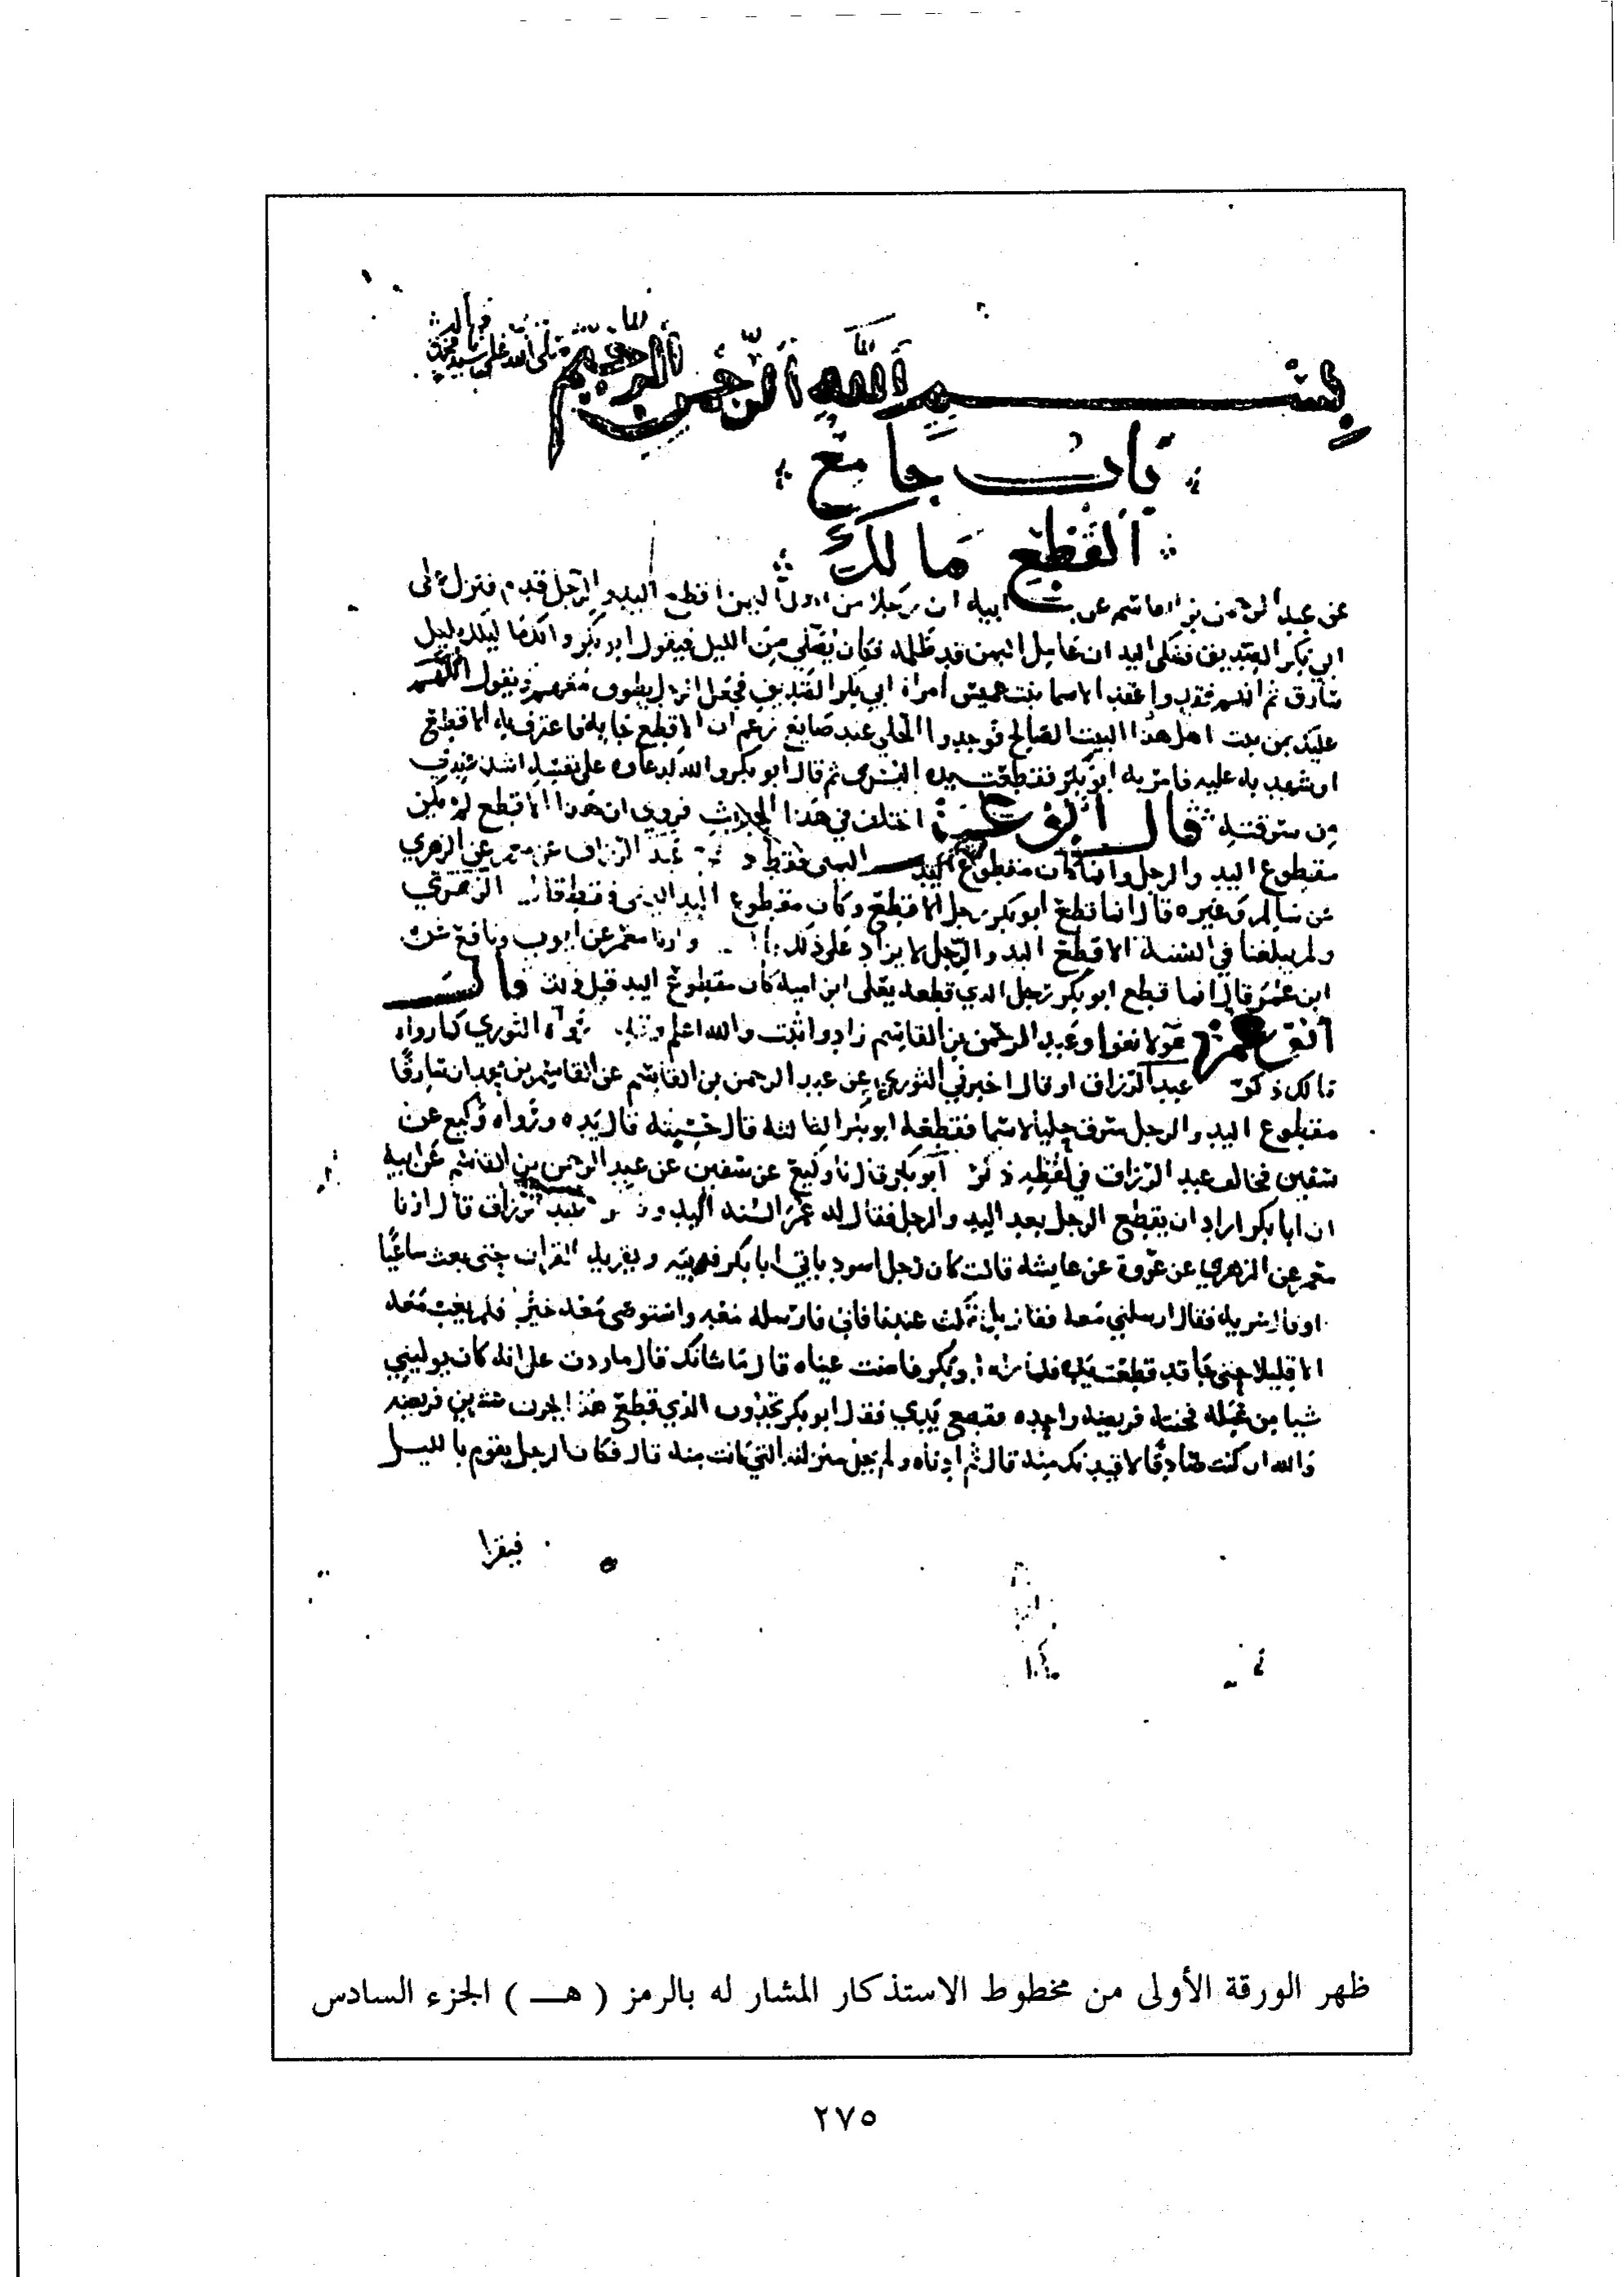 بسم الله الرحمن الرحيم
باب جامع
القطع مالك
عن عبد الرحمن بن القاسم عن ابيه ان رجلا من اليمن اقطع اليد والرجل قدم فنزل على
ابي بكر الصديق فشكى اليه ان عامل اليمن قد ظلمه فكان يصلي من الليل فيقول ابو بكر وابيك ما ليلك بليل
سارق ثم انهم فقدوا عقدا لاسما بنت عميس امراة ابي بكر الصديق فجعل الرجل يطوف معهم ويقول اللهم
عليك بمن بيت اهل هذا البيت الصالح فوجدوا الحلي عند صايغ زعم ان الاقطع جا به فاعترف به الاقطع
او شهد به عليه فامر به ابو بكر فقطعت يده اليسرى ثم قال ابو بكر والله لدعاوه على نفسه اشد عندي
من سرقته قال ابو عمر اختلف في هذا الحديث فروي ان هذا الاقطع لم يكن
مقطوع اليد والرجل وانما كان مقطوع اليد اليمنى فقط عبد الرزاق عن معمر عن الزهري
عن سالم وغيره قال انما قطع ابو بكر رجل الاقطع وكان مقطوع اليد اليمنى فقط قال الزهري
ولم يبلغنا في السنة الا قطع اليد والرجل لا يزاد على ذلك معمر عن ايوب ونافع عن
ابن عمر قال انما قطع ابو بكر رجل الذي قطعه يعلى ابن امية كان مقطوع اليد قبل ذلك قال
ابو عمر هولا نفوا وعبد الرحمن بن القاسم زاد واثبت والله اعلم رواه الثوري كما رواه
مالك ذكر عبد الرزاق قال اخبرني الثوري عن عبد الرحمن بن القاسم عن القاسم بن محمد ان سارقا
مقطوع اليد والرجل سرق حليا لاسما فقطعه ابو بكر الثالثة قال حسبته قال يده ورواه وكيع عن
سفين فخالف عبد الرزاق في لفظه ذكر ابو بكر قال نا وكيع عن سفين عن عبد الرحمن بن القاسم عن ابيه
ان ابا بكر اراد ان يقطع الرجل بعد اليد والرجل فقال له عمر السنة اليد عبد الرزاق قال انا
معمر عن الزهري عن عروة عن عايشة قالت كان رجل اسود ياتي ابا بكر فيدنيه ويقريه القران حتى بعث ساعيا
او قال سرية فقال ارسلني معه فقال بل تمكث عندنا فابى فارسله معه واستوصى معه خيرا فلم يغب عنه
الا قليلا حتى جا قد قطعت يده فلما راه ابو بكر فاضت عيناه قال ما شانك قال ما زدت على انه كان يوليني
شيا من عمله فخنته فريضة واحدة فقطع يدي فقال ابو بكر تجدون الذي قطع هذا يخون عشرين فريضة
والله ان كنت صادقا لاقيدنك منه قال ثم ادناه ولم يحل منزلته التي كانت منه قال فكان الرجل يقوم بالليل
فيقرا
ظهر الورقة الأولى من مخطوط الاستذكار المشار له بالرمز ( هـ ) الجزء السادس
٢٧٥